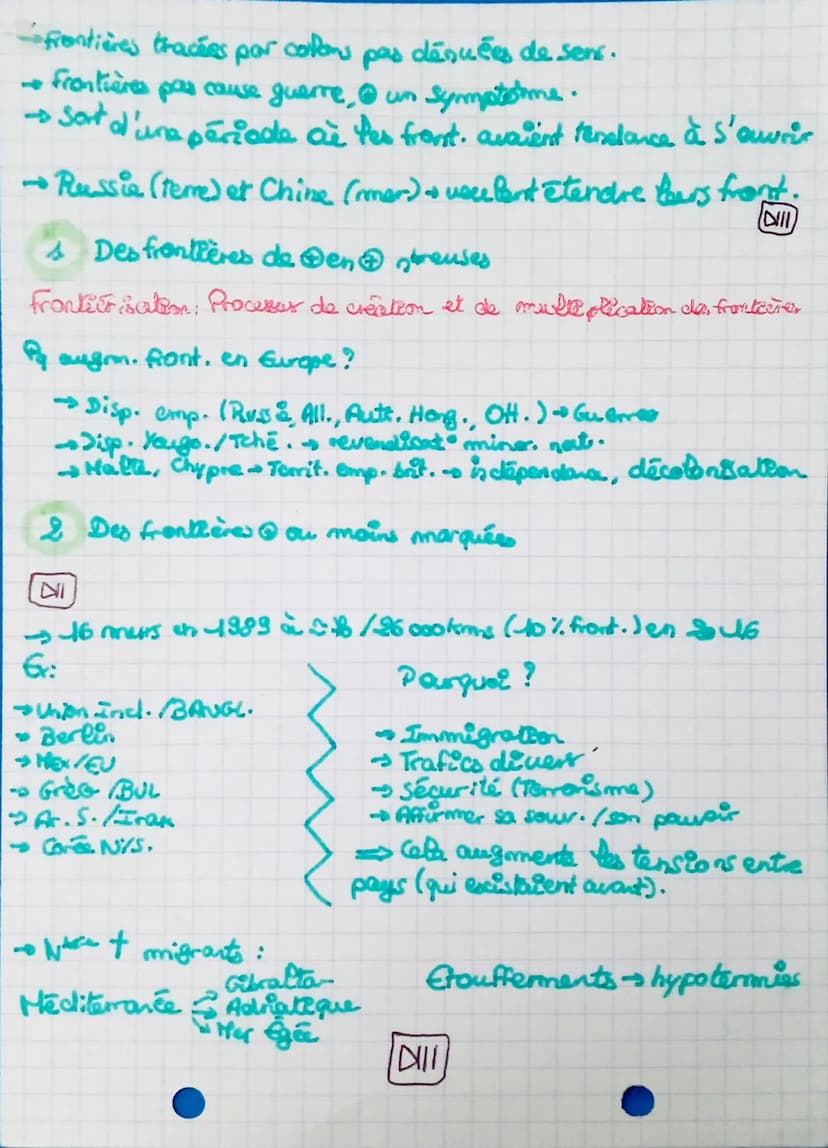 → Frontières tracées par colons pas dénuées de sens.
→ Frontières pas cause guerre, ⊕ un symptôme.
→ Sort d'une période où les front. avaient tendance à s'ouvrir
→ Russie (terre) et Chine (mer) → veulent étendre leurs front.
DIII
1 Des frontières de ⊕ en ⊕ nbreuses
Frontiérisation : Processus de création et de multiplication des frontières
Pq augm. front. en Europe ?
→ Disp. emp. (Russie, All., Autr. Hong., OH.) → Guerres
→ Disp. Yougo. / Tché. → revendicat° minor. nat.
→ Malte, Chypre → Territ. emp. brit. → indépendance, décolonisation
2 Des frontières ⊕ ou moins marquées
DII
→ 16 murs en 1989 à / 26 000 kms (10% front.) en 2016
Ex:
→ Union Ind. / BANGL.
→ Berlin
→ Mex/EU
→ Grèce / BUL
→ Ar. S. / Irak
→ Corée N/S.
Pourquoi ?
→ Immigration
→ Trafics divers
→ Sécurité (Terrorisme)
→ Affirmer sa souv. / son pouvoir
⇒ Cela augmente les tensions entre
pays (qui existaient avant).
→ † migrants :
Méditerranée
Gibraltar
→ Adriatique
→ Mer Égée
Etouffements → hypotermies
DIII